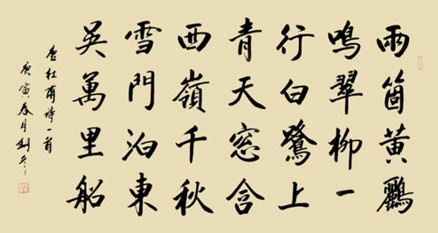 兩箇黃鸝
鳴翠柳一
行白鷺上
青天窓含
西嶺千秋
雪門泊東
吳萬里船
杜甫詩一首
庚寅春月劉